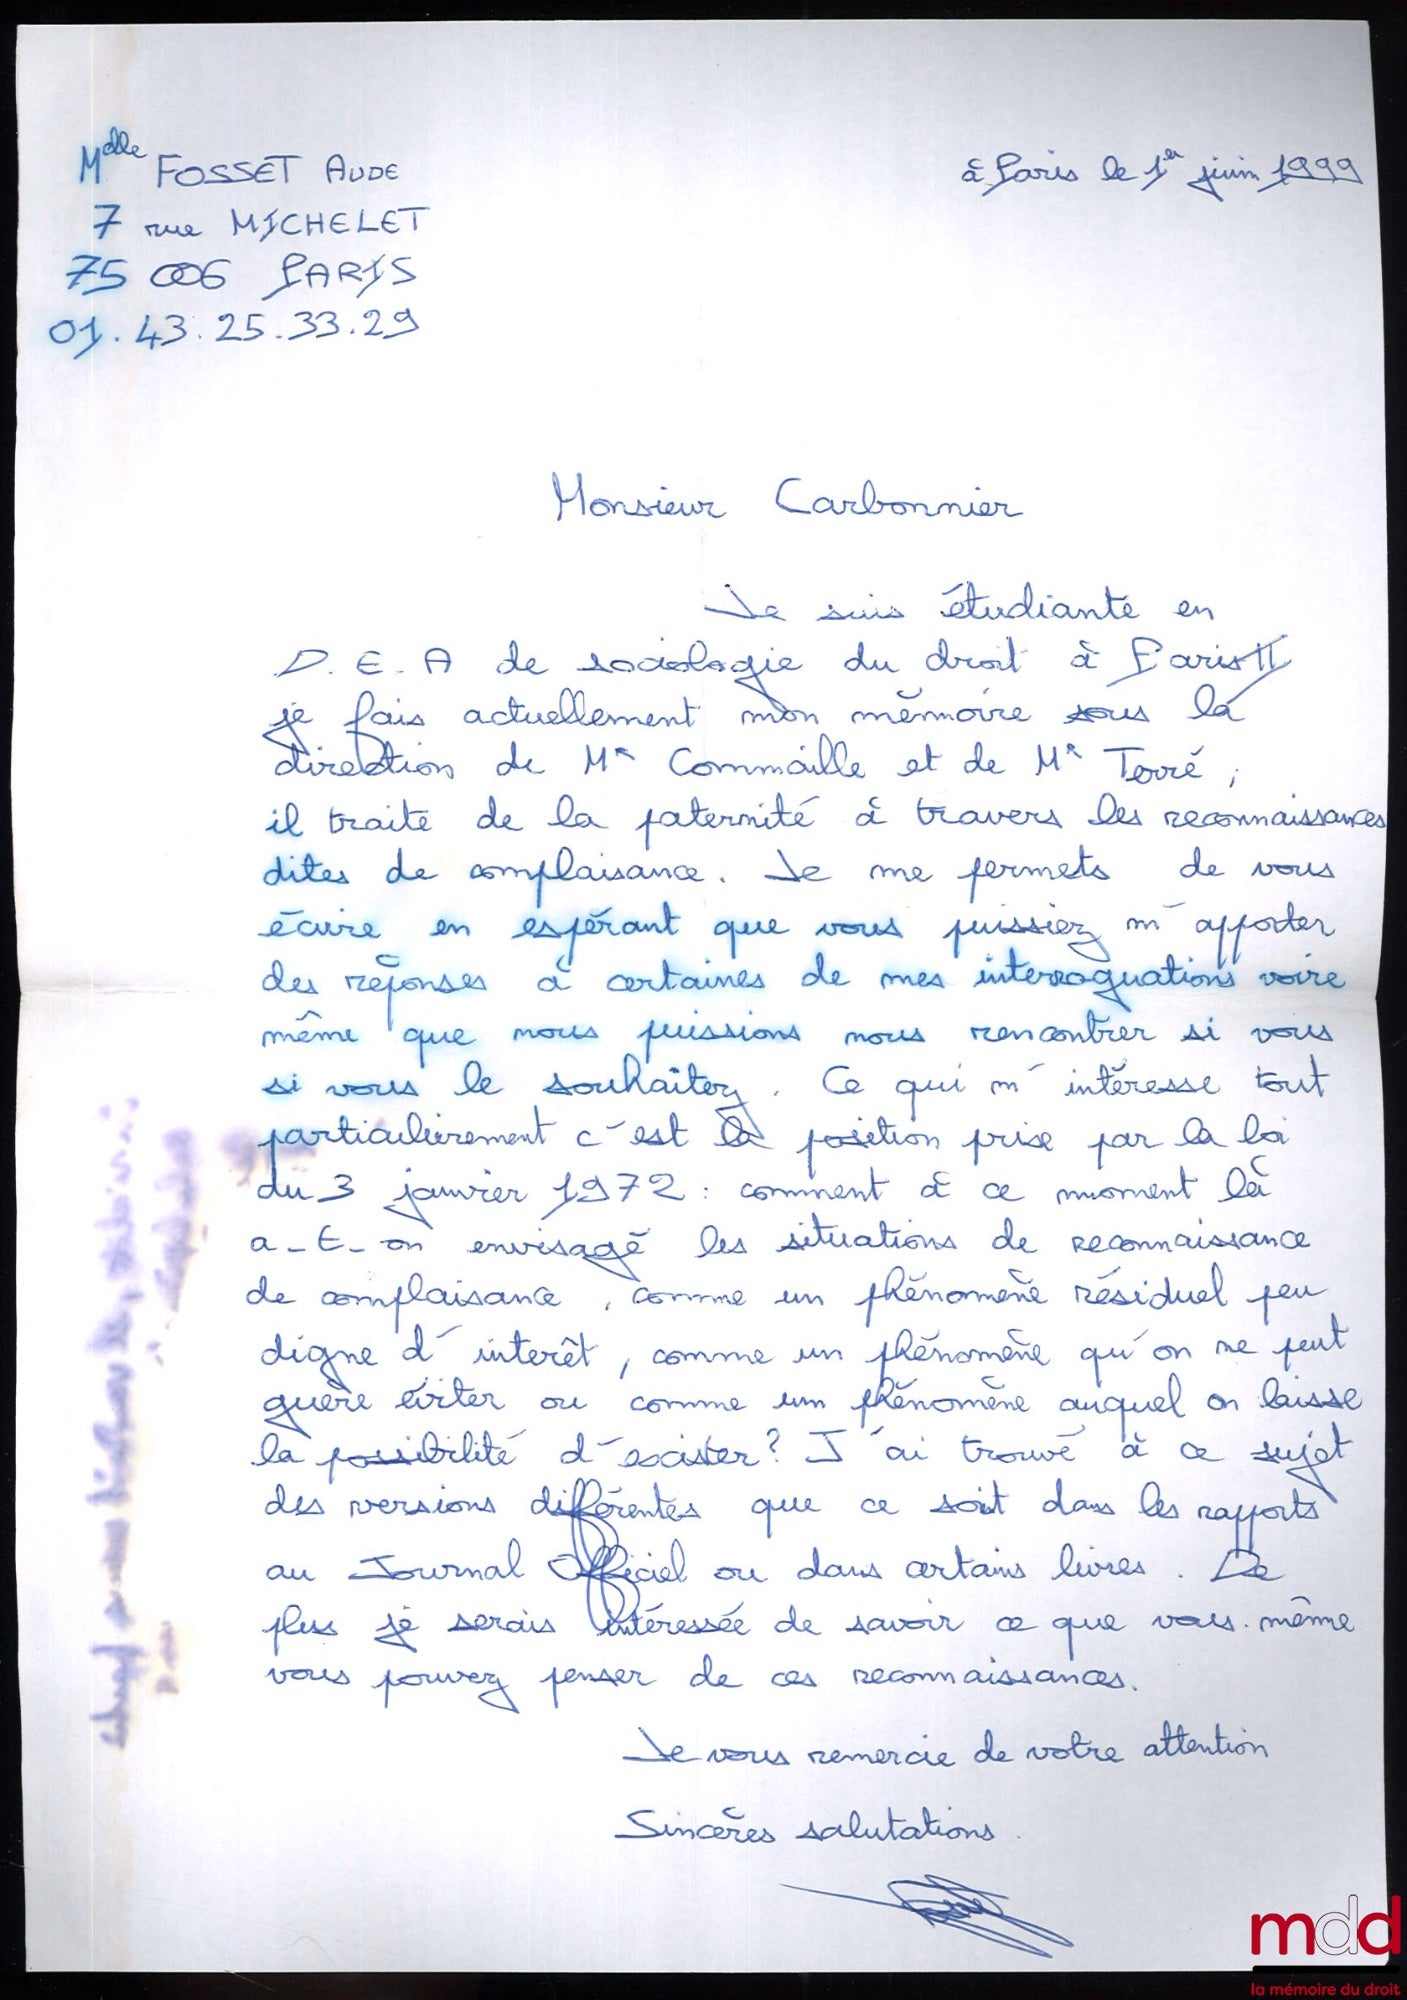 Mdlle FOSSET AUDE
7 rue MICHELET
75 006 PARIS
01.43.25.33.29
à Paris le 1er juin 1999
Monsieur Carbonnier
Je suis étudiante en
D.E.A de sociologie du droit à Paris II
je fais actuellement mon mémoire sous la
direction de Mr Commaille et de Mr Terré ;
il traite de la paternité à travers les reconnaissances
dites de complaisance. Je me permets de vous
écrire en espérant que vous puissiez m'apporter
des réponses à certaines de mes interroguations voire
même que nous puissions nous rencontrer si vous
si vous le souhaitez. Ce qui m'intéresse tout
particulièrement c'est la position prise par la loi
du 3 janvier 1972 : comment à ce moment là
a-t-on envisagé les situations de reconnaissance
de complaisance, comme un phénomène résiduel peu
digne d'interêt, comme un phénomène qu'on ne peut
guère éviter ou comme un phénomène auquel on laisse
la possibilité d'exister? J'ai trouvé à ce sujet
des versions différentes que ce soit dans les rapports
au Journal Officiel ou dans certains livres. De
plus je serais intéressée de savoir ce que vous-même
vous pouvez penser de ces reconnaissances.
Je vous remercie de votre attention
Sincères salutations.
mdd
la mémoire du droit